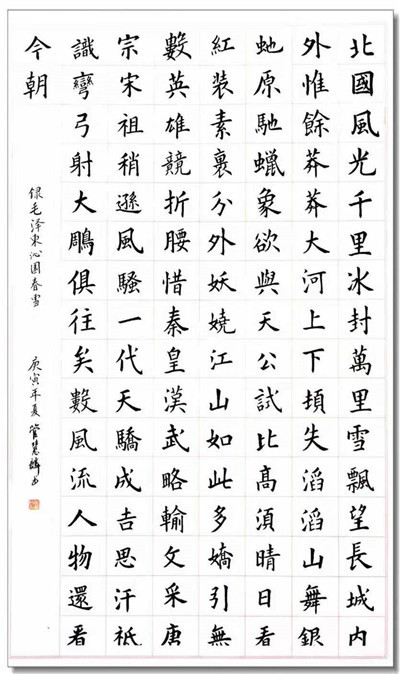 北國風光千里冰封萬里雪飄望長城內
外惟餘莽莽大河上下頓失滔滔山舞銀
虵原馳蠟象欲與天公試比高須晴日看
紅装素裹分外妖嬈江山如此多嬌引無
數英雄競折腰惜秦皇漢武略輸文采唐
宗宋祖稍遜風騷一代天驕成吉思汗衹
識彎弓射大鵰俱往矣數風流人物還看
今朝
録毛泽東沁園春雪
庚寅年夏管慧